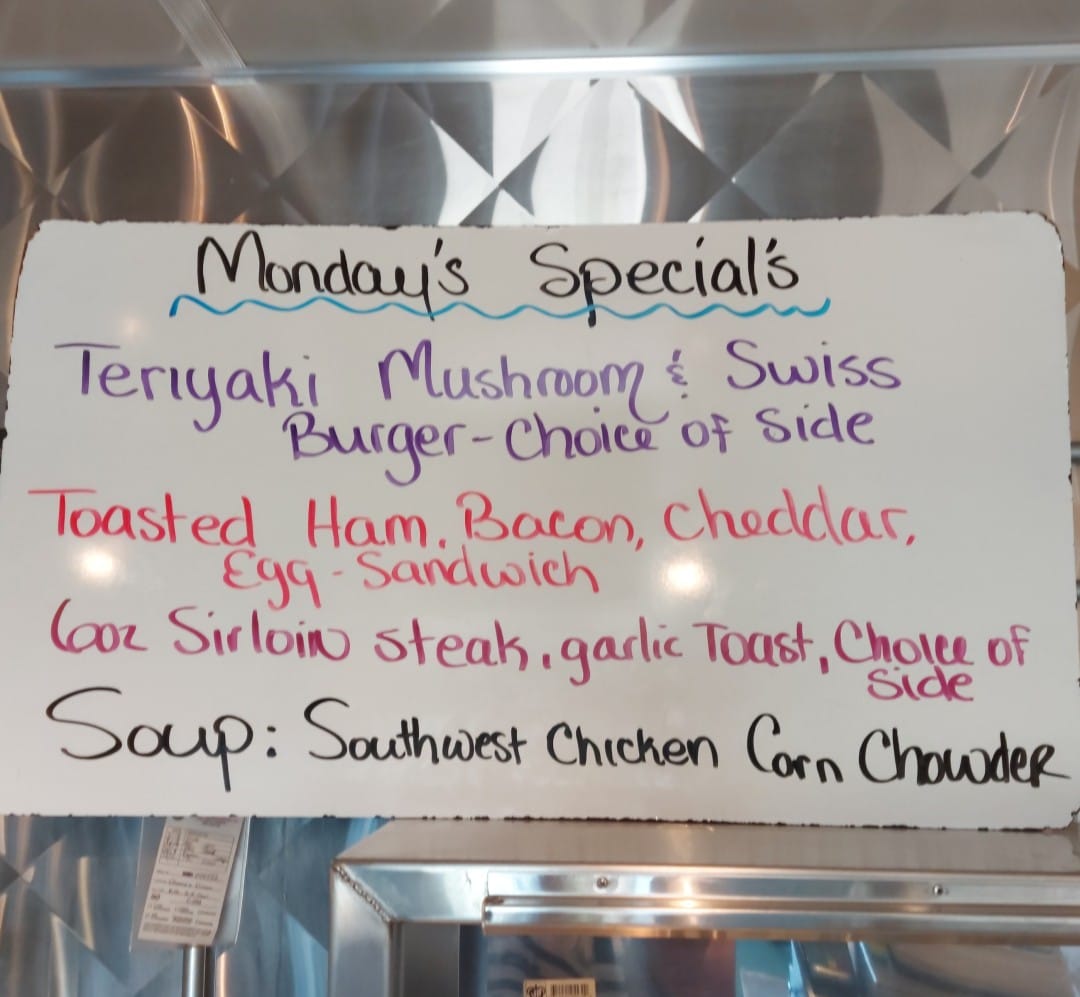 Monday's Special's
Teriyaki Mushroom & Swiss
Burger - Choice of Side
Toasted Ham, Bacon, Cheddar,
Egg - Sandwich
6oz Sirloin steak, garlic Toast, Choice of
side
Soup: Southwest Chicken Corn Chowder